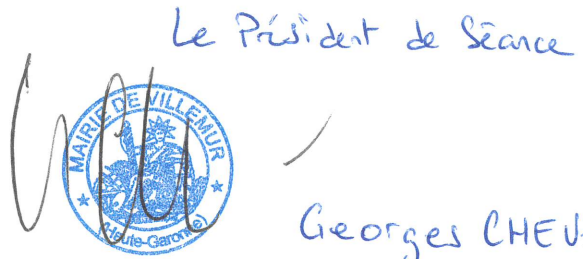 Le Président de Séance
MAIRIE DE VILLEMUR
(Haute-Garonne)
Georges CHEV